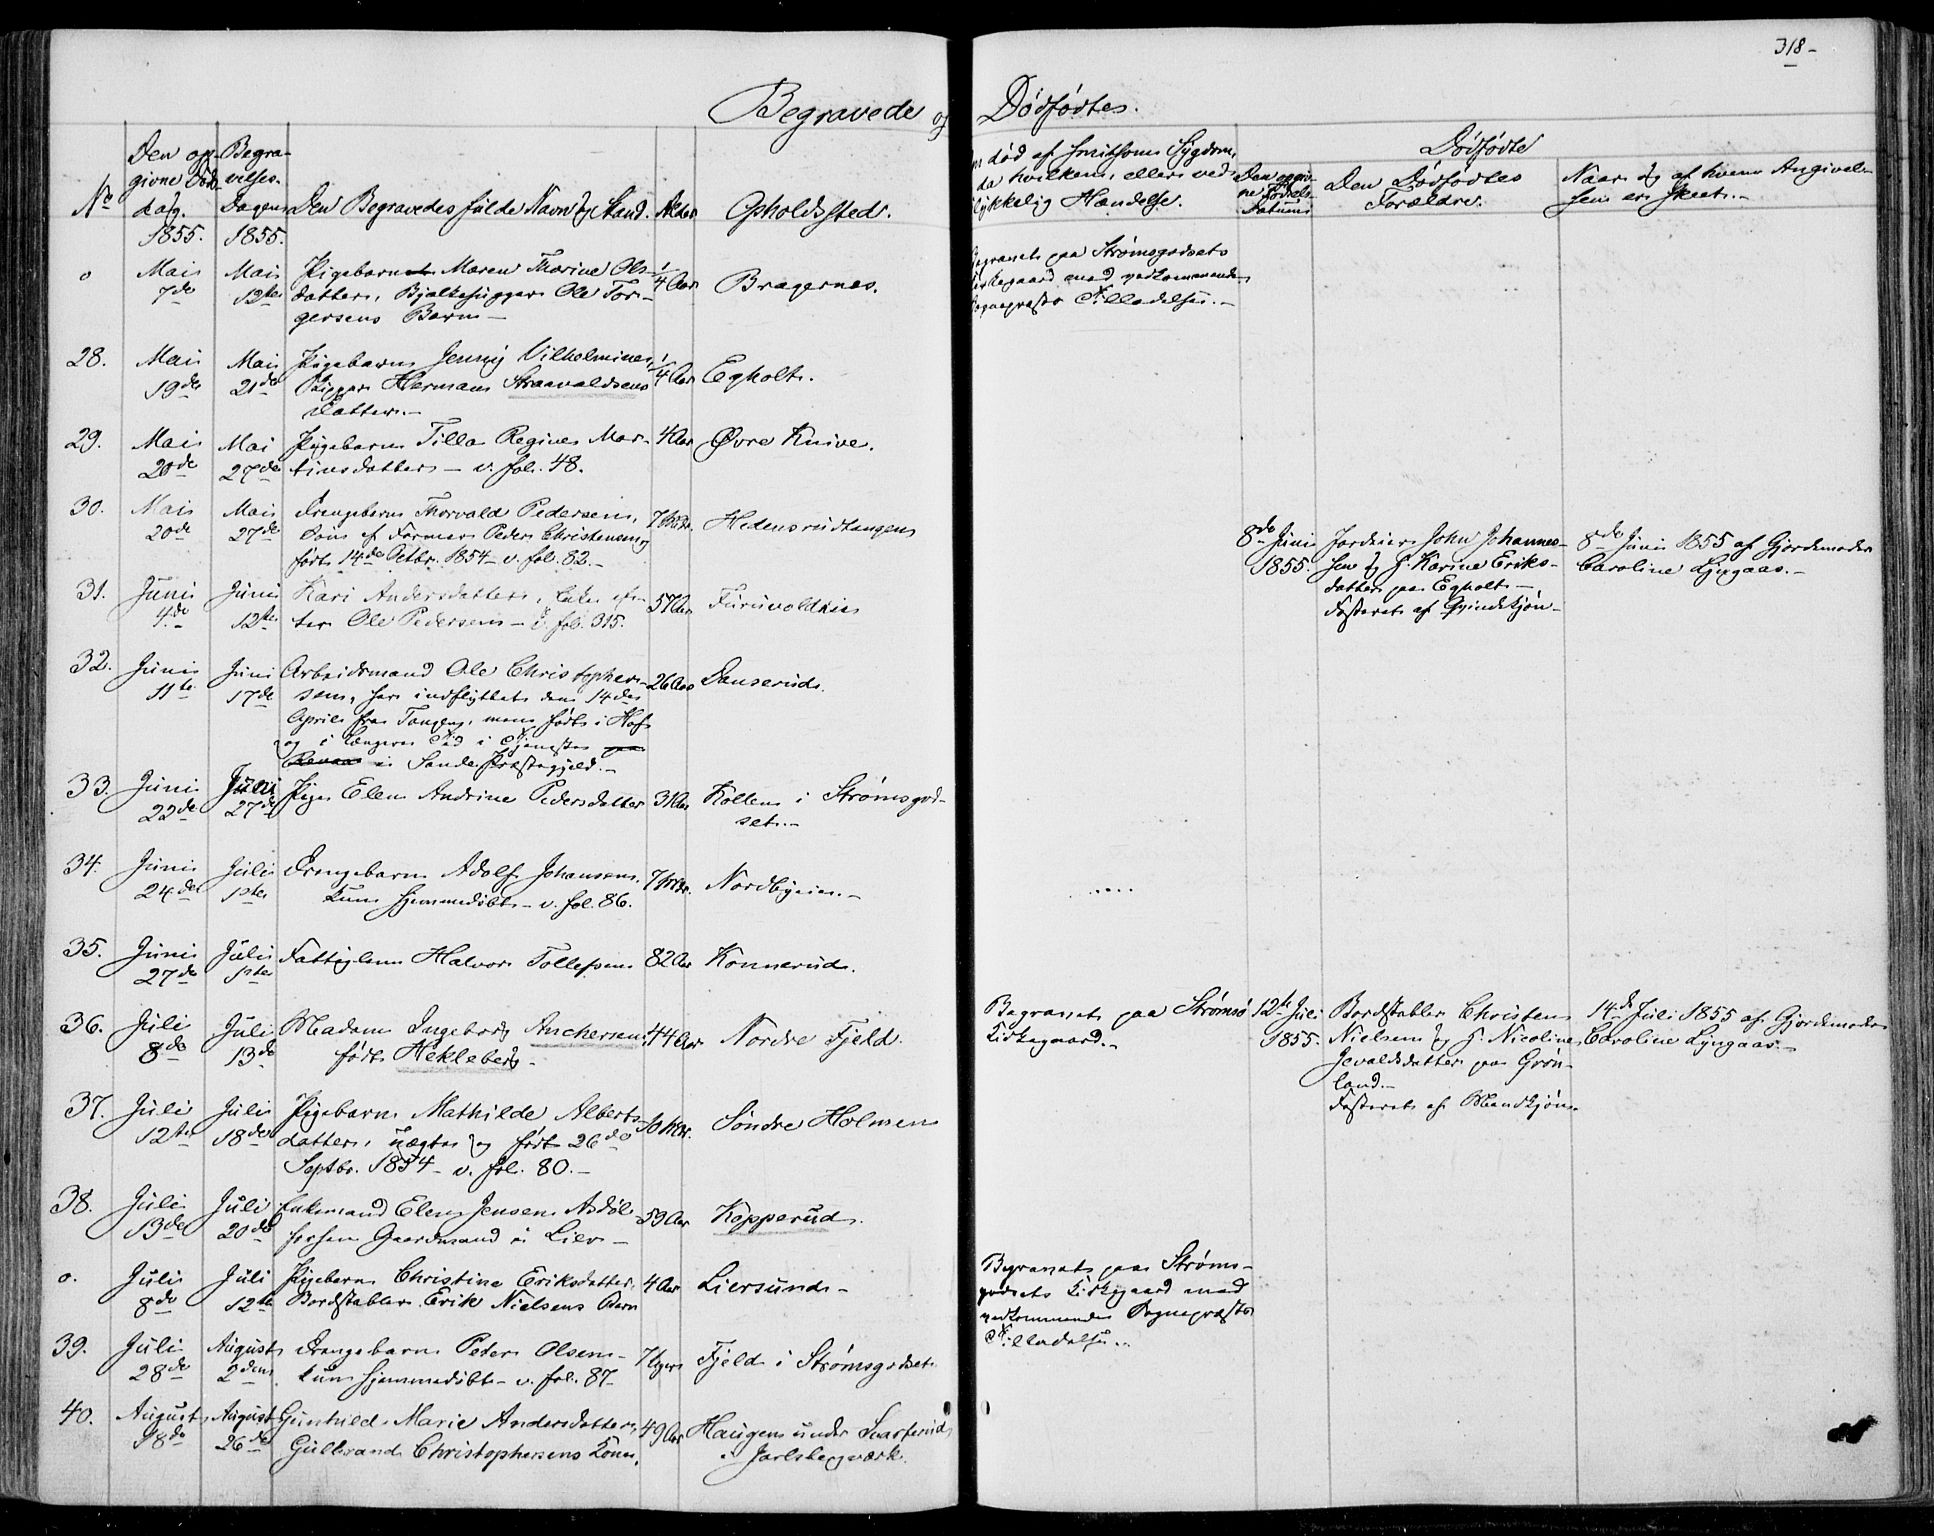 318-
Begravede og Dødfødte.
Den op- Begra-
givne Døds- velses-
No dag. Dagen Den Begravedes fulde Navn og Stand. Alder Opholdssted.
1855. 1855.
o Mai Mai Pigebarnet Maren Thorine Ols- 1/4 Aar Bragernes.
7de 12te datter, Bjelkehugger Ole Tor-
gersens Barn
28. Mai Mai Pigebarn Jenny Vilhelmine, 1/4 Aar Egholt.
19de 21de Rigger Herman Straavaldsens
Datter.
29. Mai Mai Pigebarn Tilla Regine Mar- 4 Aar Øvre Knive.
20de 27de tinsdatter - v. fol. 48.
30. Mai Mai Drengebarn Thorvald Pedersen, 7 Mdr. Hedensrudtangen
20de 27de Søn af Former Peder Christensen og
født 14de Octbr. 1854 - v. fol. 82.
31. Juni Juni Kari Andersdatter, Enke ef- 57 Aar Furuvoldeie
4de 12te ter Ole Pedersen - v. fol. 315.
32. Juni Juni Arbeidsmand Ole Christopher- 26 Aar Danserud.
11te 17de sen, har indflyttet den 14de
April fra Tangen, men født i Hof
og i længere Tid i Tjeneste paa
i Sande Præstegjeld.
33. Juni Juni Pige Elen Andrine Pedersdatter 31 Aar Kollen i Strømsgod-
22de 27de set.
34. Juni Juli Drengebarn Adolf Johansen. 7 Mdr. Nordbyeie.
24de 1ste kun hjemmedøbt - v. fol. 86.
35. Juni Juli Fattiglem Halvor Tollefsen 82 Aar Konnerud.
27de 1ste
36. Juli Juli Madam Ingeborg Anchersen, 44 Aar Nordre Fjeld.
8de 13de født Hekleberg
37. Juli Juli Pigebarn Mathilde Alberts- 10 Mdr. Søndre Holmen
12te 18de datter, uægte og født 26de
Septbr. 1854 - v. fol. 80.
38. Juli Juli Enkemand Elen Jensen Asdøl 59 Aar Kopperud.
13de 20de forhen Gaardmand i Lier
o. Juli Juli Pigebarn Christine Eriksdatter, 4 Aar Liersund
8de 12te Bordstabler Erik Nielsens Barn
39. Juli August Drengebarn Peder Olsen 7 Uger Fjeld i Strømsgodset.
28de 2den kun hjemmedøbt - v. fol. 87
40. August August Gunhild Marie Andersdatter, 49 Aar Haugen under Skarferud
18de 26de Gulbrand Christophersens Kone, i Jarlsbergværk.
død af smitsom Sygdom,
da hvilken, eller ved
lykkelig Hændelse.
Dødfødte
Den opgiv-
ne Fødsels-
Datum
Den Dødfødtes
Forældre.
Naar og af hvem Angivel-
sen er skeet.
Begravet paa Strømsgodsets
Kirkegaard med vedkommende
Sognepræsts Tilladelse.
8de Juni Jordeier John Johannes- 8de Juni 1855 af Gjordemoder
1855. sen og H. Karine Eriks- Caroline Lyngaas.
datter paa Egholt
Fosteret af Qvindekjøn
Begravet paa Strømsø 12te Juli Bordstabler Christen 14de Juli 1855 af Gjordemoder
Kirkegaard. 1855. Nielsen og H. Nicoline Caroline Lyngaas.
Gevaldsdatter paa Grøn-
land.
Fosteret af Mandkjøn.
Begravet paa Strøms-
godsets Kirkegaard med
vedkommende Sognepræsts
Tilladelse.